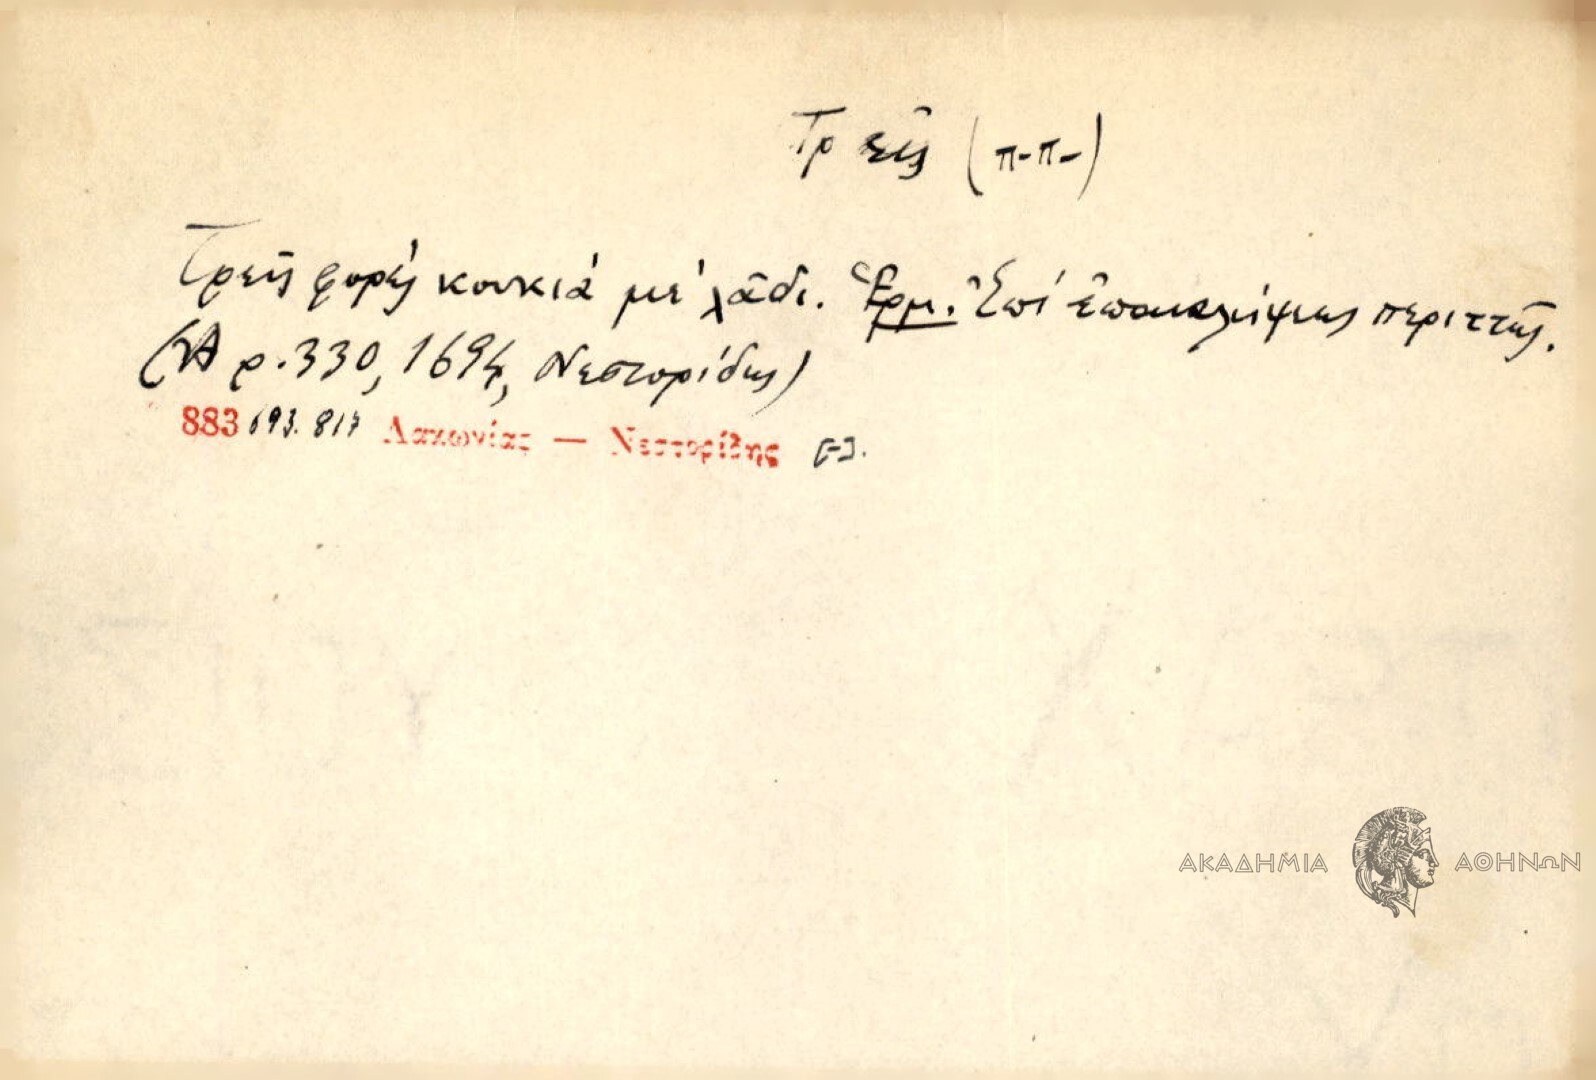 Τρεῖς (π-π-)
Τρεῖς φορές κουκιά μέ λᾶδι. Ἑρμ. Ἐπί ἐπαναλήψεως περιττῆς.
(Ἀρ. 330, 1694, Νεστορίδης)
883 693. 817 Λακωνίας — Νεστορίδης [-].
ΑΚΑΔΗΜΙΑ ΑΘΗΝΩΝ